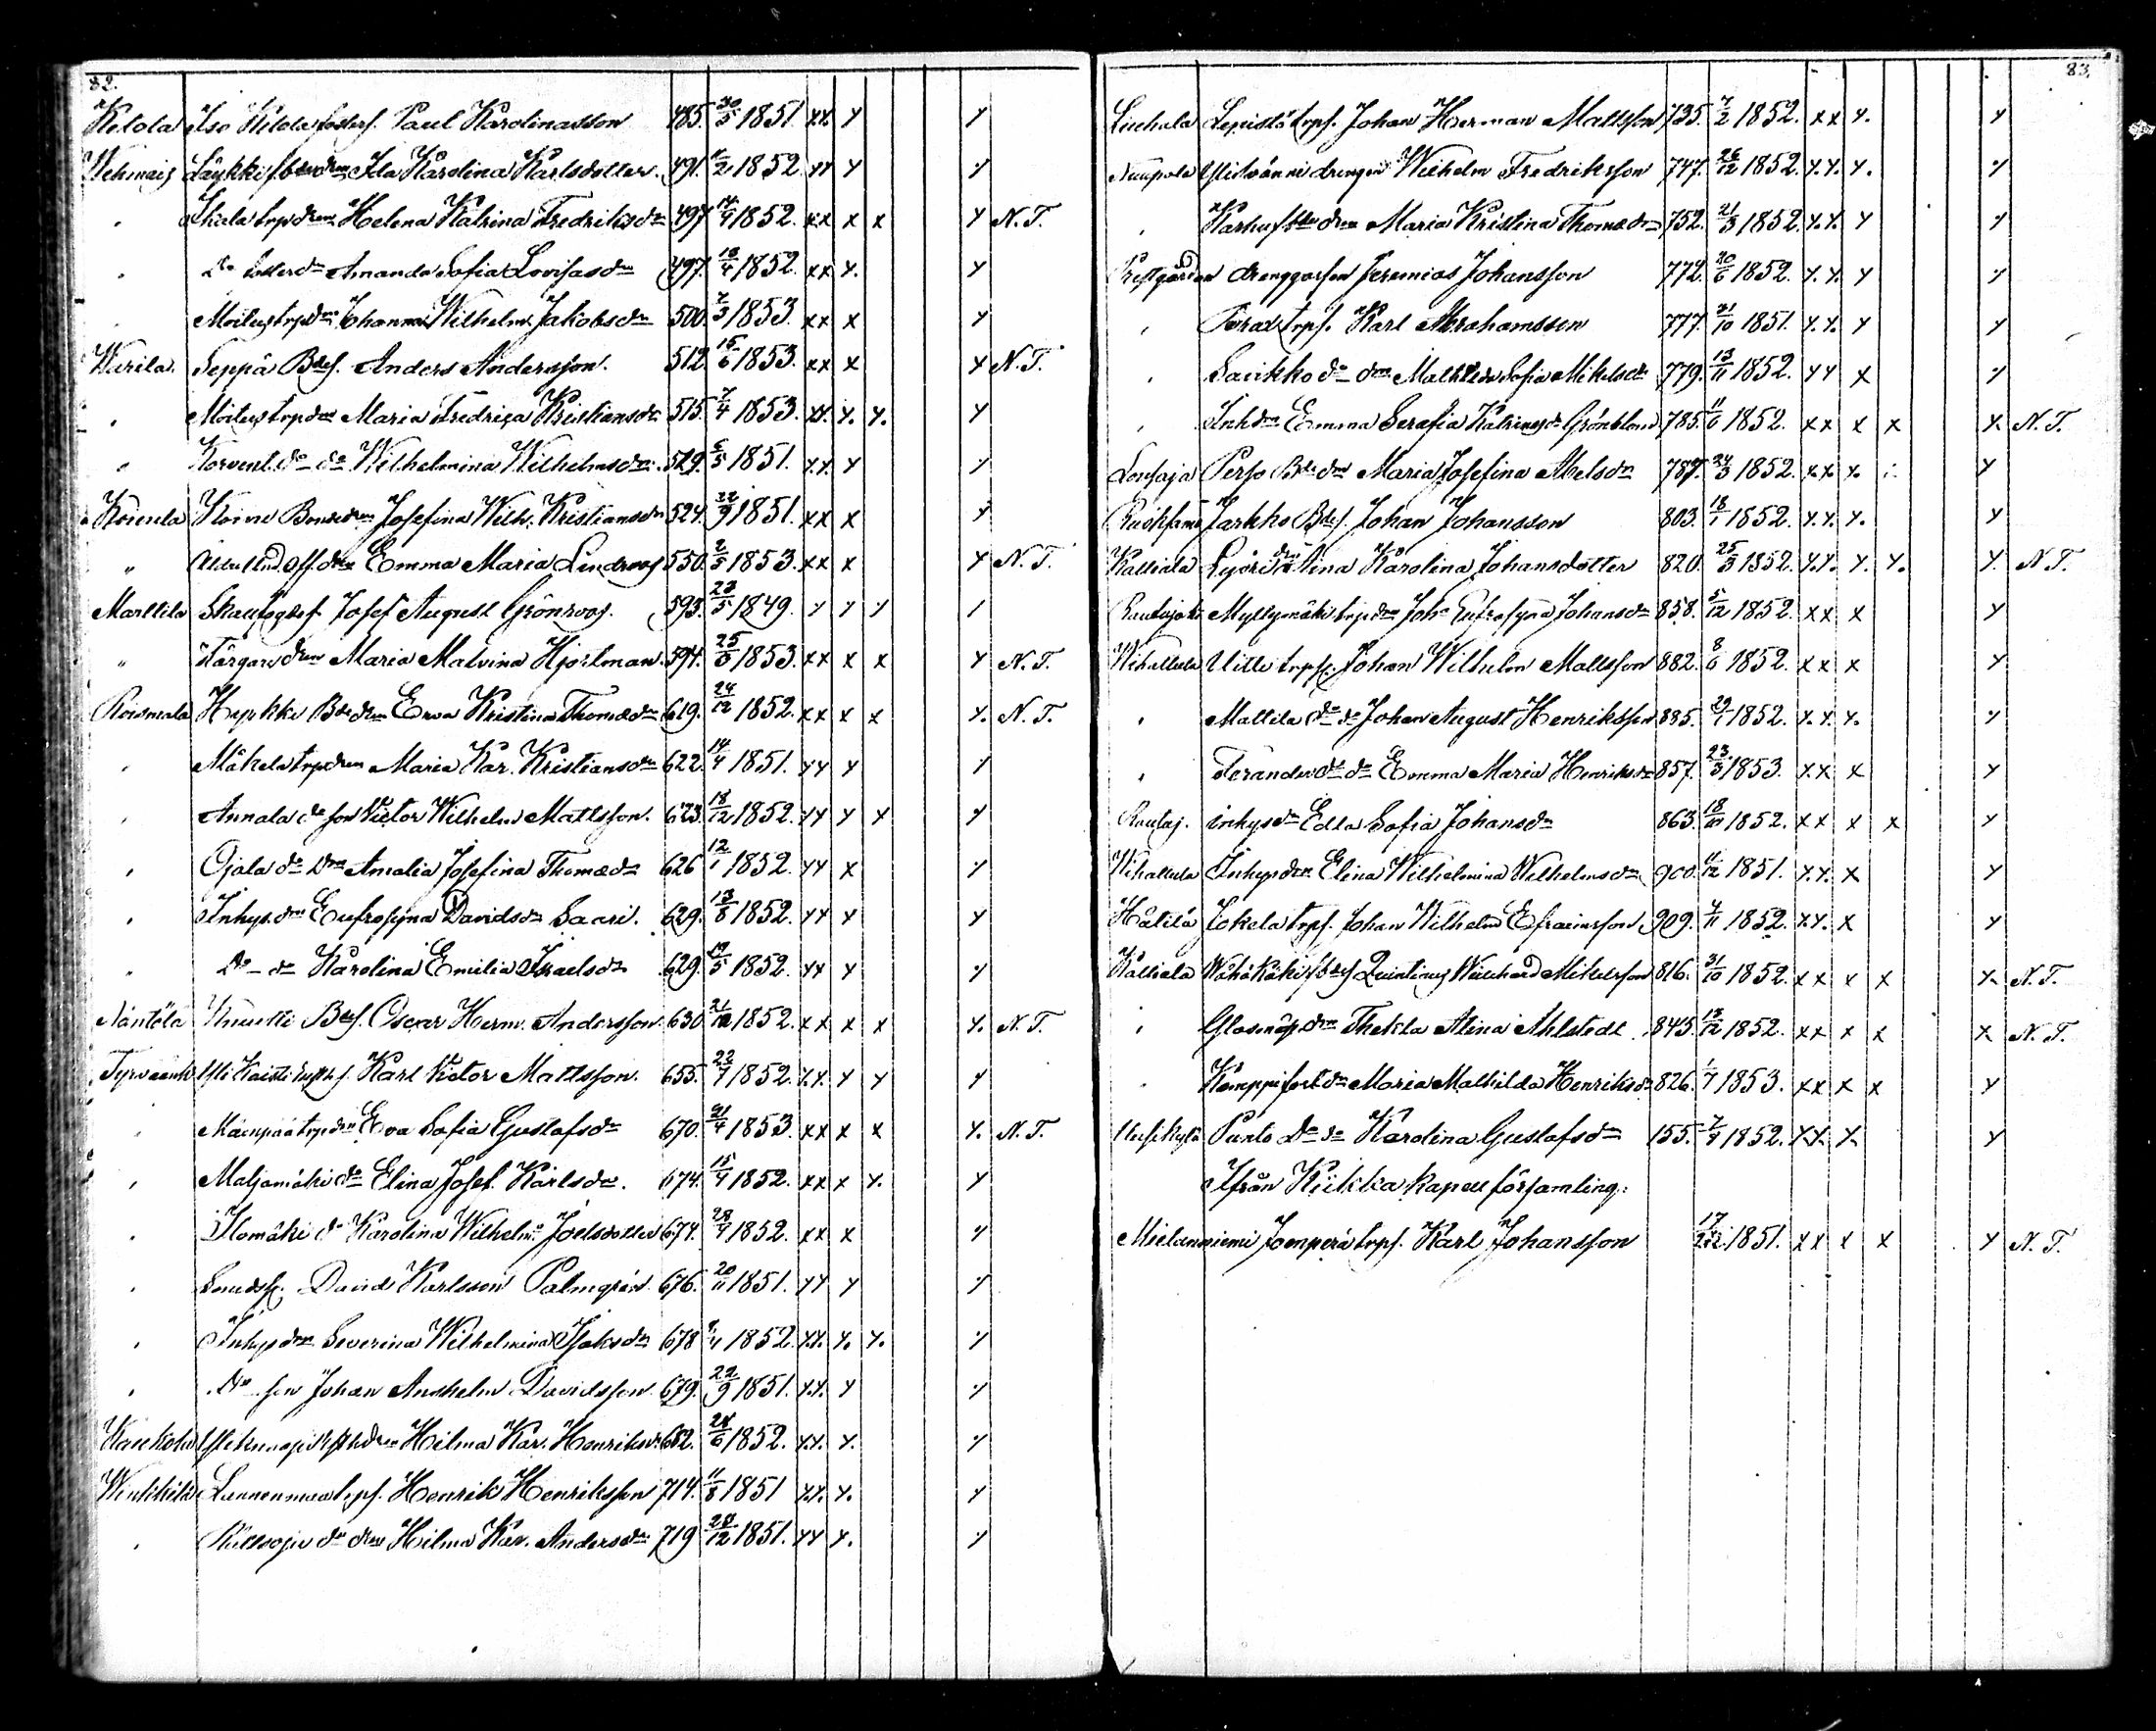 82.
Kilola Iso Kilola fosters. Paul Karolinasson 485. 30/5 1851. xx x x
Wehmais Läykki Ida Karolina Karlsdotter. 491. 1852. xx x x
" trpdrn Helena Katrina Fredriksdr 497. 14/9 1852. xx x x x N. T.
" Do Amanda Sofia Lovisasdr 497. 18/4 1852. xx x. x
" trpdrn Johanna Wilhelm. Jakobsdr 500. 7/3 1853. xx x x
Warila. Seppä Bdes. Anders Andersson. 512. 15/6 1853. xx x x N. T.
" trpdrn Maria Fredrika Kristiansdr 515. 7/4 1853. xx. x. x. x
" Korvent. do do Wilhelmina Wilhelmsdr. 529. 6/5 1851. xx x x
Köunla Koivu Bondedrn Josefina Wilh. Kristiansdr 524. 22/9 1851. xx x x
" Emma Maria Lindroos 550. 2/5 1853. xx x x N. T.
Marttila Josef August Grönroos. 593. 23/5 1849. x x x /
" Färgaredrn Maria Malvina Hjortman. 594. 25/5 1853. xx x x x N. T.
Roismala Hyrkki Bdedrn Eva Kristina Thomædr 619. 24/12 1852. xx x x x. N. T.
" Mäkela trpdrn Maria Kar. Kristiansdr 622. 14/4 1851. xx x x
" Annala do son Victor Wilhelm Mattsson. 623. 18/12 1852. xx x x x
" Ojala do Drn Amalia Josefina Thomædr 626 12/1 1852. xx x x
" Inhys.drn Eufrosyna Davidsdr Saari. 629. 13/8 1852. xx x x
" Do dr Karolina Emilia Israelsdr 629. 19/5 1852. xx x x
Näntölä Knuutti Bdes. Oscar Herm. Andersson. 630. 1852. xx x x x. N. T.
Tyrväänk Karl Victor Mattsson. 655. 22/7 1852. x.x. x x x
" Mäenpää trpdrn Eva Sofia Gustafsdr 670. 21/4 1853. xx x x x. N. T.
" Maljamäki do Elina Josef. Karlsdr. 674. 15/4 1852. xx x x. x
" Ilomäki do Karolina Wilhelm Joelsdotter 674. 28/4 1852. xx x x
" David Karlsson Palmgrén. 676. 20/11 1851. xx x x
" Inhysdrn Severina Wilhelmina Isaksdr 678 1852. xx. x. x. x
" Do son Johan Anshelm Davidsson 679. 22/9 1851. x.x. x x
Hilma Kar. Henriksdr 682. 24/6 1852. x.x. x. x
Lännenmaa trps. Henrik Henriksson 714. 11/8 1851 x.x. x. x
" do drn Hilma Kar. Andersdr 719 28/12 1851. xx x. x
83.
Liuhala Lepistö trps. Johan Herman Mattsson 735. 7/2 1852. xx x. x
Nuupala drengen Wilhelm Fredriksson 747. 26/12 1852. x.x. x. x
" Karhu drn Maria Kristina Thomædr 752. 21/3 1852. x.x. x x
Prestgården drenggossen Jeremias Johansson 772. 20/6 1852. x.x. x x
" trps. Karl Abrahamsson 777. 21/10 1851. x.x. x x
" Saukko do drn Mathilda Sofia Mikelsdr 779. 13/11 1852. xx x x
" Inhdrn Emma Serafia Katrinasdr Grönblom 785. 11/6 1852. xx x x x. N. T.
Lousaja Perho Bdedrn Maria Josefina Abelsdr 787. 24/3 1852. x.x x. x
Jarkko Bdes. Johan Johansson 803. 18/1 1852. x.x. x. x
Kalliala drn Aina Karolina Johansdotter 820. 25/3 1852. x.x. x. x. x. N. T.
Rautajoki Myllymäki trpdrn Joha Eufrosyna Johansdr 858. 5/12 1852. xx x x
Wihattula Uitti trps. Johan Wilhelm Mattsson 882. 8/6 1852. xx x x
" Mattila do do Johan August Henriksson 885. 29/1 1852. x.x. x. x
" do do Emma Maria Henriksdr 857. 23/3 1853. x.x x x
Rautaj. inhysdr Edla Sofia Johansdr 863. 1852. xx x x x
Wihattula Inhysdrn Elina Wilhelmina Wilhelmsdr 900. 1851. x.x. x x
Hätilä Jokela trps. Johan Wilhelm Efraimsson 909. 1852. x.x. x x
Kalliala Quintinus Mikelsson 816. 31/10 1852. xx x x x. N. T.
" drn Thekla Alina Ahlstedt. 845. 18/12 1852. xx x x x N. T.
" Kemppi Maria Mathilda Henriksdr 826. 1/7 1853. xx x x x
Punto Do do Karolina Gustafsdr 155. 1852. x.x. x x
Ifrån Kiikka kapell församling:
Mielanniemi trps. Karl Johansson 1851. xx x x x N. T.